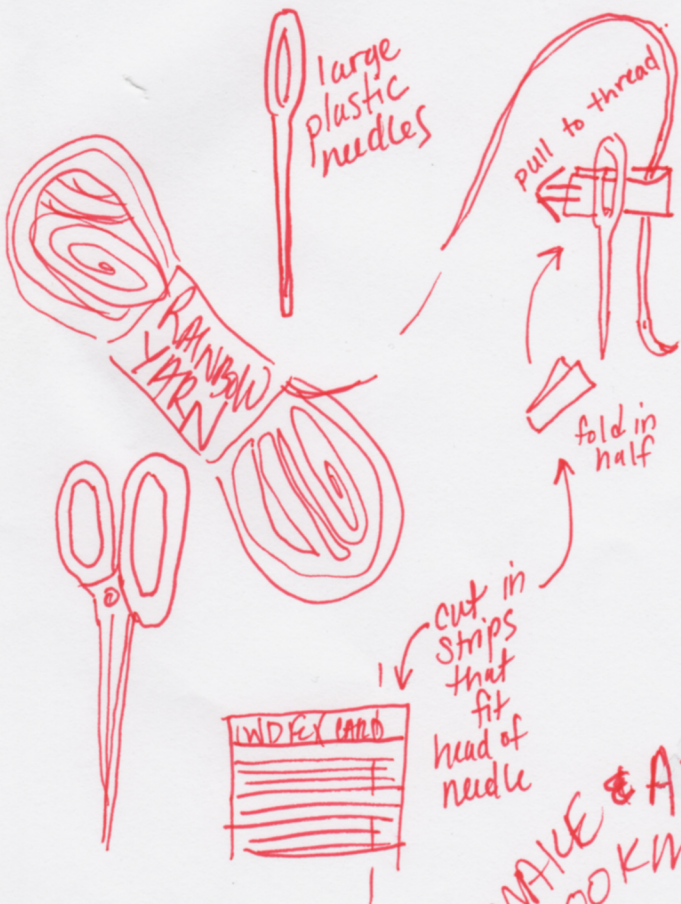 large
plastic
needles
pull to thread
RAINBOW
YARN
fold in
half
cut in
strips
that
fit
head of
needle
INDEX CARD